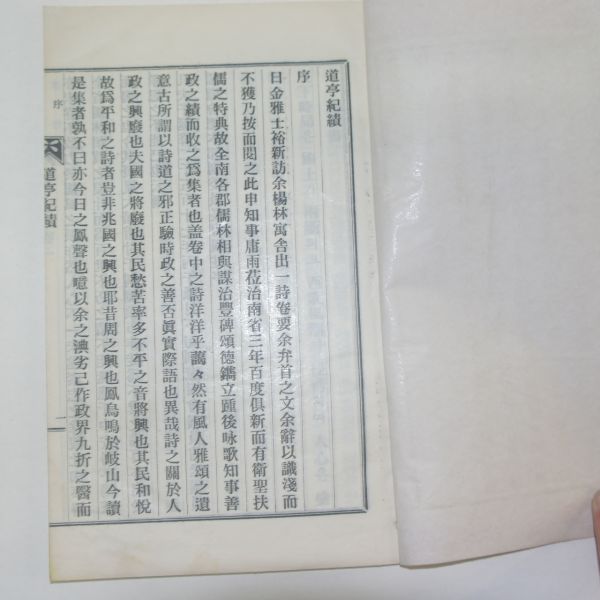 道亭紀績
序
日金雅士裕新訪余楊林寓舍出一詩卷要余弁首之文余辭以識淺而
不獲乃按而閱之此申知事庸雨莅治南省三年百度俱新而有衛聖扶
儒之特典故全南各郡儒林相與謀治豐碑頌德鐫立踵後咏歌知事善
政之績而收之爲集者也盖卷中之詩洋洋乎藹々然有風人雅頌之遺
意古所謂以詩道之邪正驗時政之善否眞實際語也異哉詩之關於人
政之興廢也夫國之將廢也其民愁苦率多不平之音將興也其民和悅
故爲平和之詩者豈非兆國之興也耶昔周之興也鳳鳥鳴於岐山今讀
是集者孰不曰亦今日之鳳聲也噫以余之淟劣己作政界九折之醫而
道亭紀績
序
一